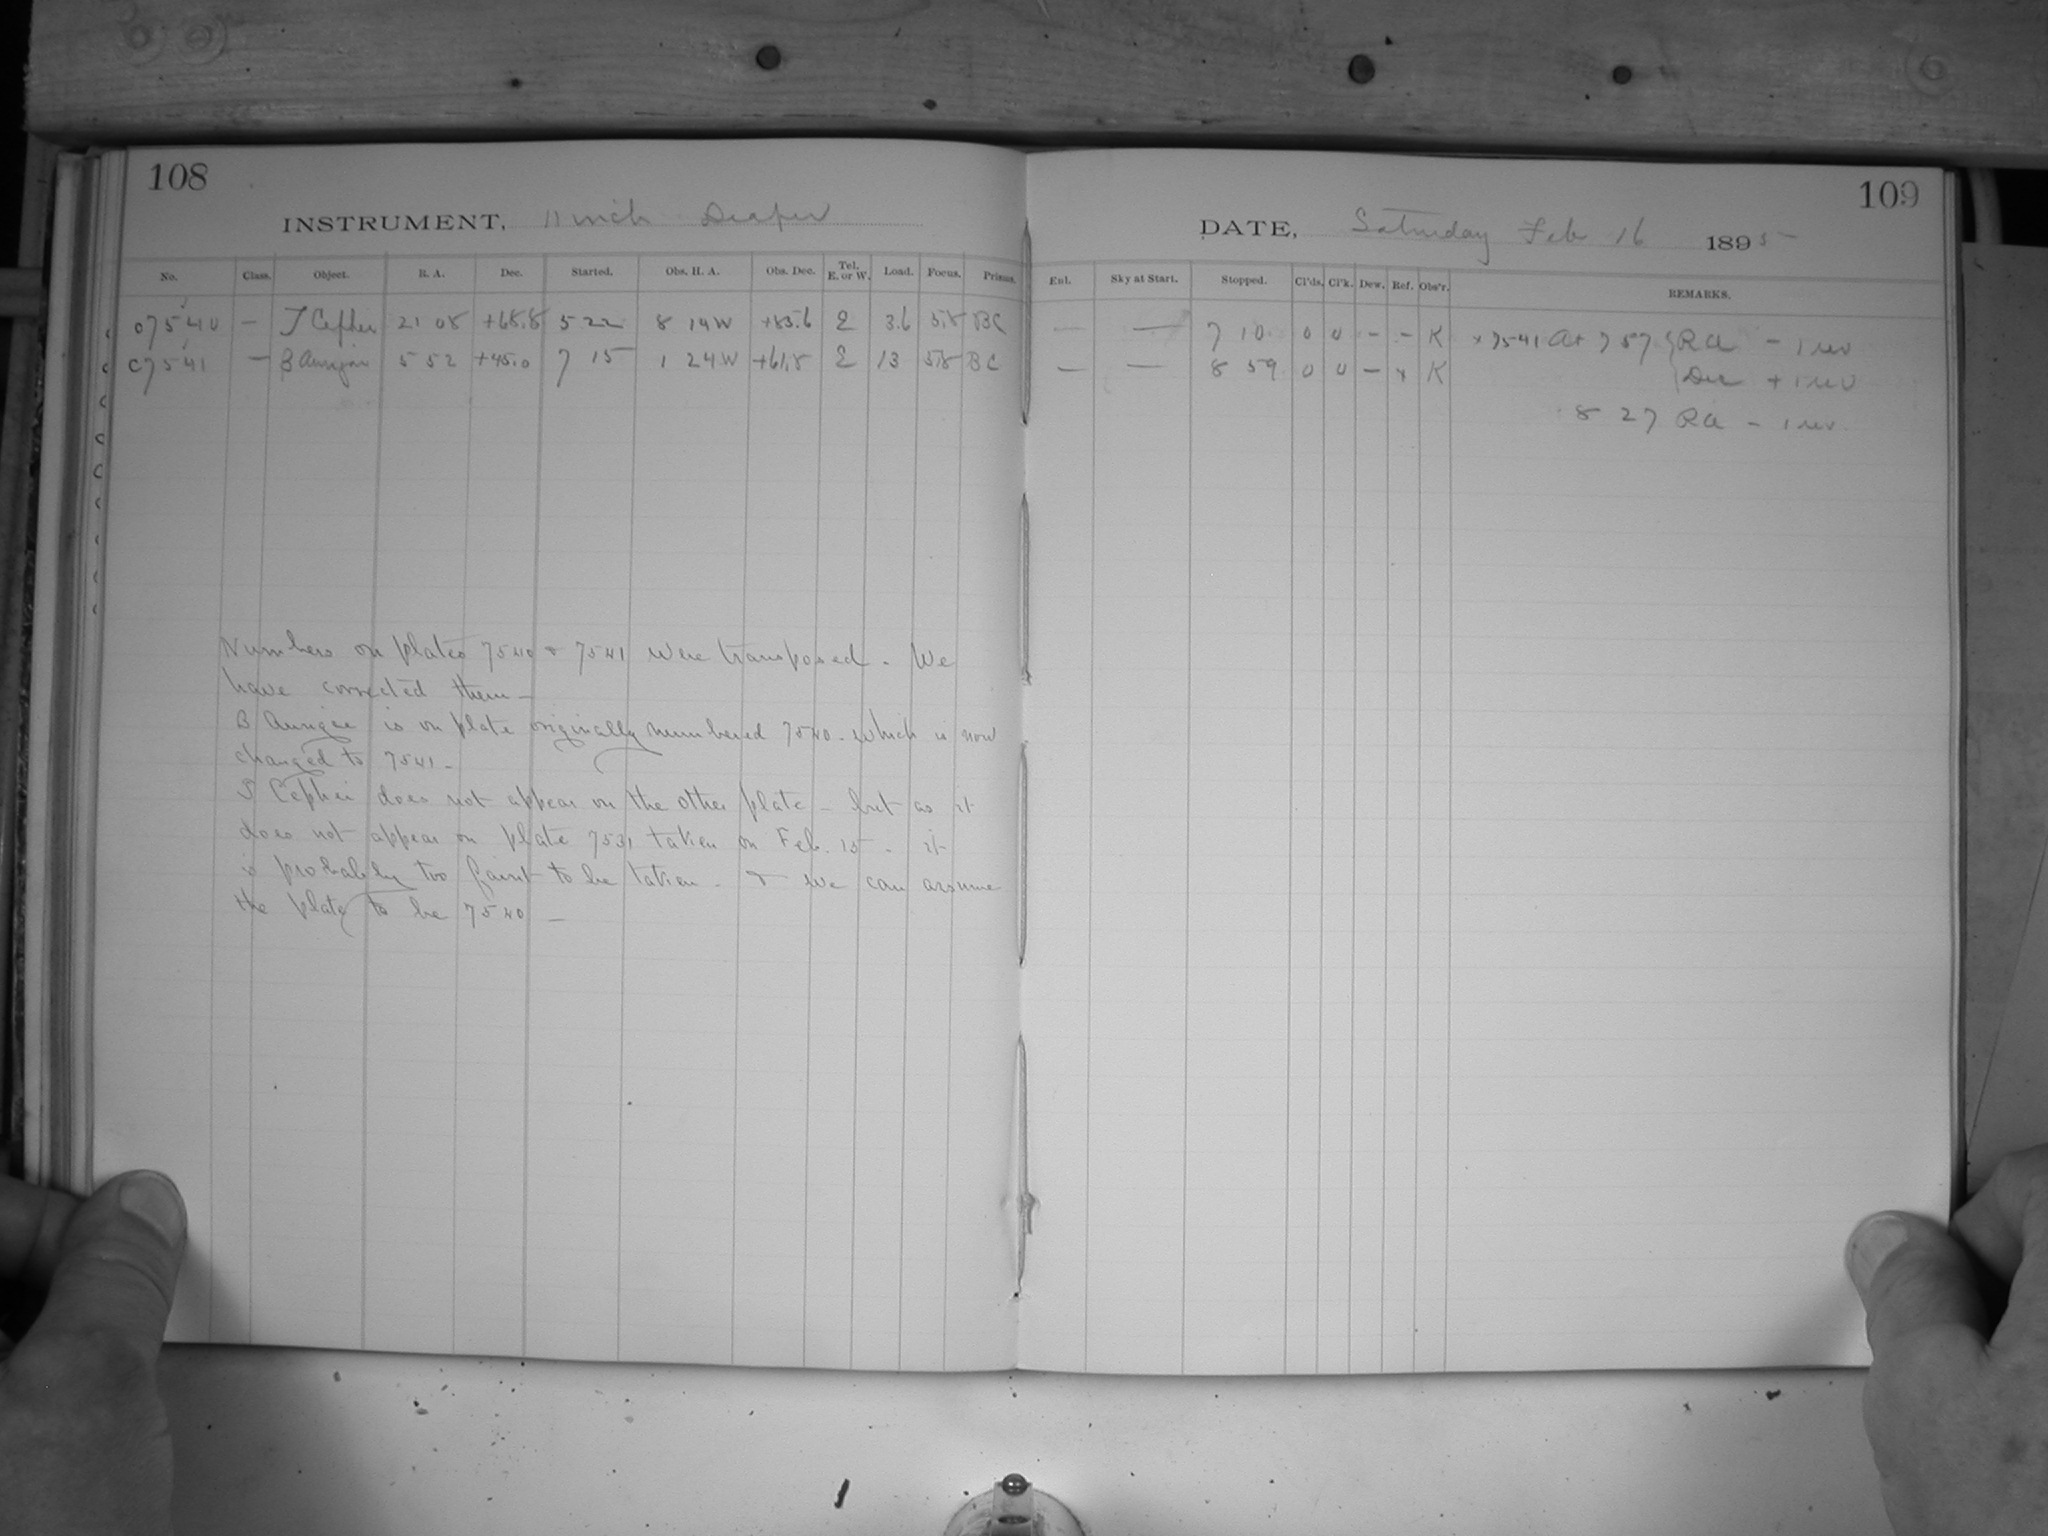 108
INSTRUMENT, 11 inch Draper
No. Class. Object. R. A. Dec. Started. Obs. H. A. Obs. Dec. Tel. E. or W. Load. Focus. Prisms.
C7540 — T Cephei 21 08 +68.8 5 22 8 14W +85.6 E 3.6 5.8 BC
C7541 — β Aurigae 5 52 +45.0 7 15 1 24W +61.8 E 13 5.8 BC
Numbers on plates 7540 & 7541 were transposed. We
have corrected them —
B Aurigae is on plate originally numbered 7540 - which is now
changed to 7541 —
T Cephei does not appear on the other plate - but as it
does not appear on plate 7531 taken on Feb. 15 - it
is probably too faint to be taken - & we can assume
the plate to be 7540 —
109
DATE, Saturday Feb 16 1895
Enl. Sky at Start. Stopped. Cl'ds. Cl'k. Dew. Ref. Obs'r. REMARKS.
— — 7 10 0 0 - - K x 7541 At 7 57 { RA - 1 rev
— — 8 59 0 0 - x K { Dec + 1 rev
8 27 RA - 1 rev.